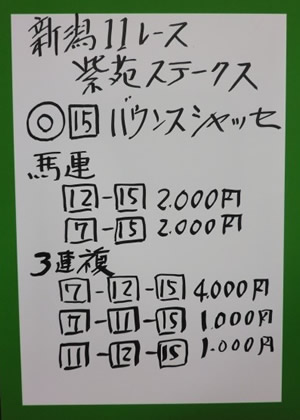 新潟11レース
紫苑ステークス
◎ 15 バウンスシャッセ
馬連
12-15 2.000円
7-15 2.000円
3連複
7-12-15 4.000円
7-11-15 1.000円
11-12-15 1.000円